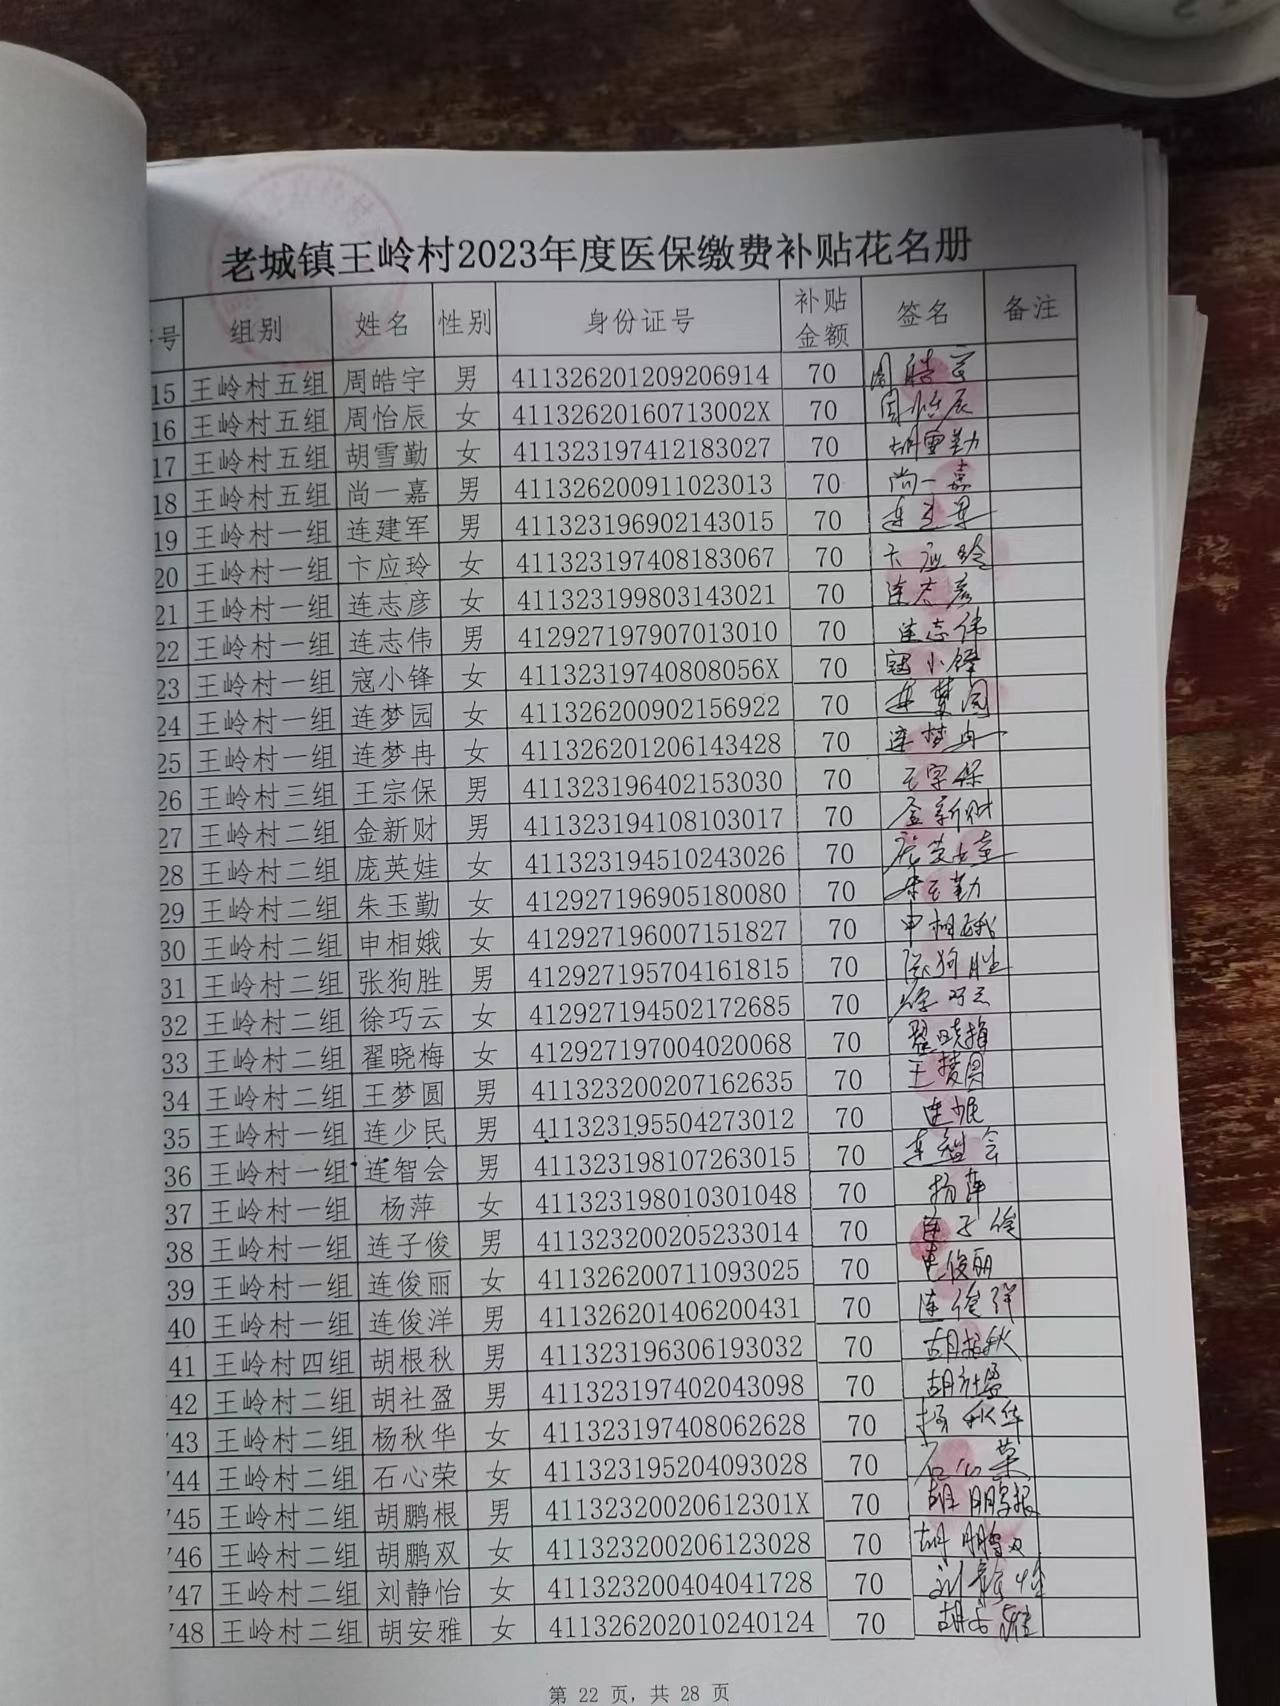 老城镇王岭村2023年度医保缴费补贴花名册
号 组别 姓名 性别 身份证号 补贴金额 签名 备注
15 王岭村五组 周皓宇 男 411326201209206914 70 周皓宇
16 王岭村五组 周怡辰 女 41132620160713002X 70 周怡辰
17 王岭村五组 胡雪勤 女 411323197412183027 70 胡雪勤
18 王岭村五组 尚一嘉 男 411326200911023013 70 尚一嘉
19 王岭村一组 连建军 男 411323196902143015 70
20 王岭村一组 卞应玲 女 411323197408183067 70 卞应玲
21 王岭村一组 连志彦 女 411323199803143021 70 连志彦
22 王岭村一组 连志伟 男 412927197907013010 70 连志伟
23 王岭村一组 寇小锋 女 41132319740808056X 70 寇小锋
24 王岭村一组 连梦园 女 411326200902156922 70 连梦园
25 王岭村一组 连梦冉 女 411326201206143428 70 连梦冉
26 王岭村三组 王宗保 男 411323196402153030 70 王宗保
27 王岭村二组 金新财 男 411323194108103017 70 金新财
28 王岭村二组 庞英娃 女 411323194510243026 70 庞英娃
29 王岭村二组 朱玉勤 女 412927196905180080 70 朱玉勤
30 王岭村二组 申相娥 女 412927196007151827 70 申相娥
31 王岭村二组 张狗胜 男 412927195704161815 70 张狗胜
32 王岭村二组 徐巧云 女 412927194502172685 70 徐巧云
33 王岭村二组 翟晓梅 女 412927197004020068 70 翟晓梅
34 王岭村二组 王梦圆 男 411323200207162635 70 王梦圆
35 王岭村一组 连少民 男 411323195504273012 70 连少民
36 王岭村一组 连智会 男 411323198107263015 70 连智会
37 王岭村一组 杨萍 女 411323198010301048 70 杨萍
38 王岭村一组 连子俊 男 411323200205233014 70 连子俊
39 王岭村一组 连俊丽 女 411326200711093025 70 连俊丽
40 王岭村一组 连俊洋 男 411326201406200431 70 连俊洋
41 王岭村四组 胡根秋 男 411323196306193032 70 胡根秋
742 王岭村二组 胡社盈 男 411323197402043098 70 胡社盈
743 王岭村二组 杨秋华 女 411323197408062628 70 杨秋华
744 王岭村二组 石心荣 女 411323195204093028 70 石心荣
745 王岭村二组 胡鹏根 男 41132320020612301X 70 胡鹏根
746 王岭村二组 胡鹏双 女 411323200206123028 70 胡鹏双
747 王岭村二组 刘静怡 女 411323200404041728 70 刘静怡
748 王岭村二组 胡安雅 女 411326202010240124 70 胡安雅
第 22 页，共 28 页